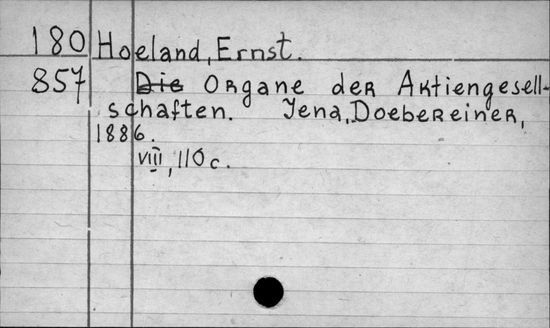 180 Hoeland, Ernst.
857 Die Organe der Aktiengesell-
schaften. Jena, Doebereiner,
1886.
VIII, 110 c.